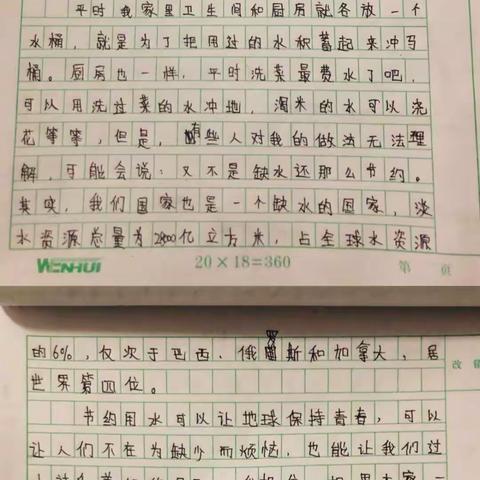 平时我家里卫生间和厨房就各放一个
水桶，就是为了把用过的水积蓄起来冲马
桶。厨房也一样，平时洗菜最费水了吧，
可以用洗过菜的水冲地，淘米的水可以浇
花等等，但是，有些人对我的做法无法理
解，可能会说：又不是缺水还那么节约。
其实，我们国家也是一个缺水的国家，淡
水资源总量为2800亿立方米，占全球水资源
WENHUI 20×18=360 第 页
的6%，仅次于巴西、俄罗斯和加拿大，居
世界第四位。
改
节约用水可以让地球保持青春，可以
让人们不在为缺少而烦恼，也能让我们过